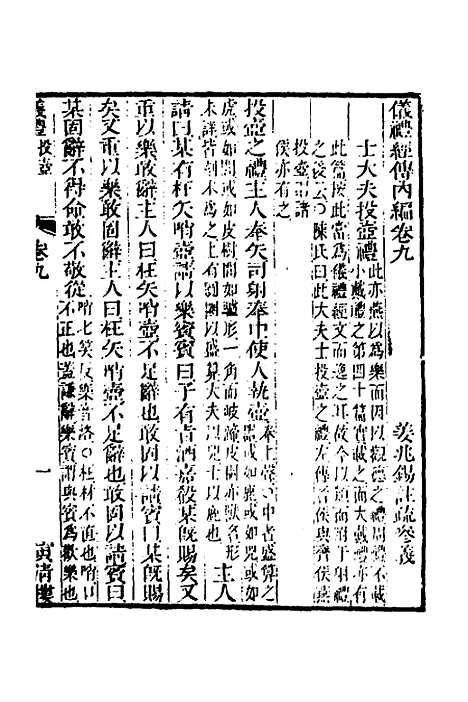 儀禮經傳內編卷九
姜兆錫註疏參義
士大夫投壺禮此亦燕以為樂而因以觀德之禮周禮不載
小戴禮之第四十篇實載之而大戴禮亦有
此篇按此當為儀禮經文而逸之耳故今以道而附于射禮
之後云○陳氏曰此大夫士投壺之禮左傳與齊侯燕
投壺則諸
侯亦有之
投壺之禮主人奉矢司射奉中使人執壺奉上聲○中者盛算之
器或如鹿或如兕或如
虎或如閭或如皮樹閭如驢形一角而岐蹄皮樹亦獸名形
未詳皆刻木為之上有圓圈以盛算大夫以兕士以鹿也主人
請曰某有枉矢哨壺請以樂賓賓曰子有旨酒嘉殽某既賜矣又
重以樂敢辭主人曰枉矢哨壺不足辭也敢固以請賓曰某既賜
矣又重以樂敢固辭主人曰枉矢哨壺不足辭也敢固以請賓曰
某固辭不得命敢不敬從哨七笑反樂音洛○枉材不直也哨口
不正也蓋謙辭樂賓謂與賓為歡樂也
儀禮投壺
卷九
一
寅清樓